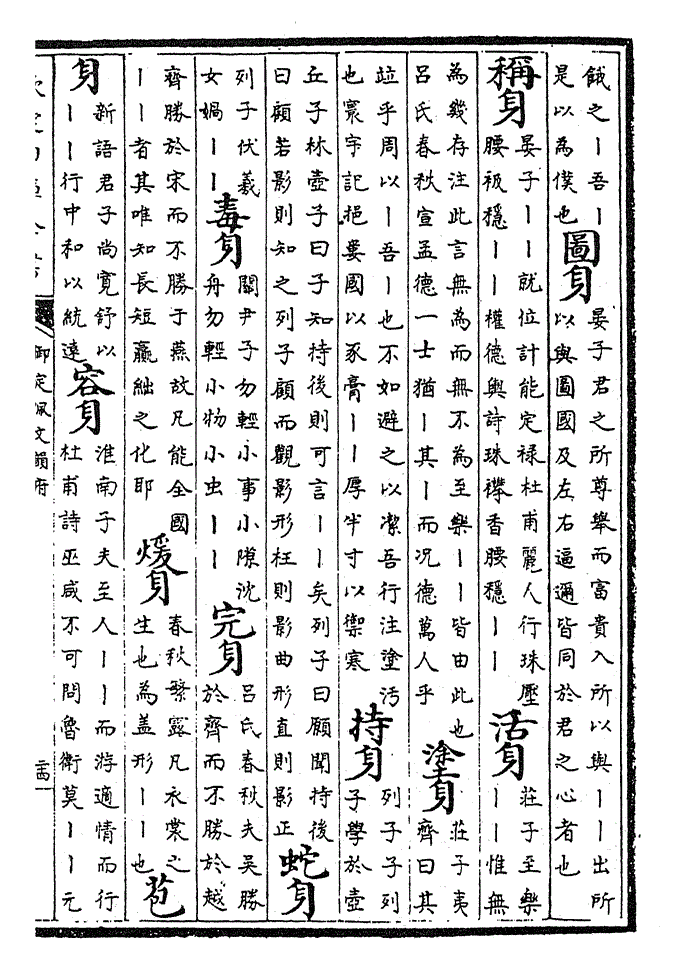 餓之丨吾丨是以為僕也圖身晏子君之所尊舉而富貴入所以與丨丨出所以與圖國及左右逼邇皆同於君之心者也
稱身晏子丨丨就位計能定禄杜甫麗人行珠壓腰衱穩丨丨權德輿詩珠襻香腰穩丨丨活身莊子至樂丨丨惟無
為幾存注此言無為而無不為至樂丨丨皆由此也吕氏春秋宣孟德一士猶丨其丨而况德萬人乎塗身莊子夷齊曰其
竝乎周以丨吾丨也不如避之以潔吾行注塗汚也寰宇記挹婁國以豕膏丨丨厚半寸以禦寒持身列子子列子學於壺
丘子林壺子曰子知持後則可言丨丨矣列子曰願聞持後曰顧若影則知之列子顧而觀影形枉則影曲形直則影正蛇身
列子伏羲女媧丨丨毒身關尹子勿輕小事小隙沈舟勿輕小物小虫丨丨完身吕氏春秋夫吳勝於齊而不勝於越
齊勝於宋而不勝于燕故凡能全國丨丨者其唯知長短贏絀之化耶煖身春秋繁露凡衣裳之生也為盖形丨丨也苞
身新語君子尚寛舒以丨丨行中和以統遠容身淮南子夫至人丨丨而游適情而行杜甫詩巫咸不可問魯衛莫丨丨元
欽定四庫全書
御定佩文韻府